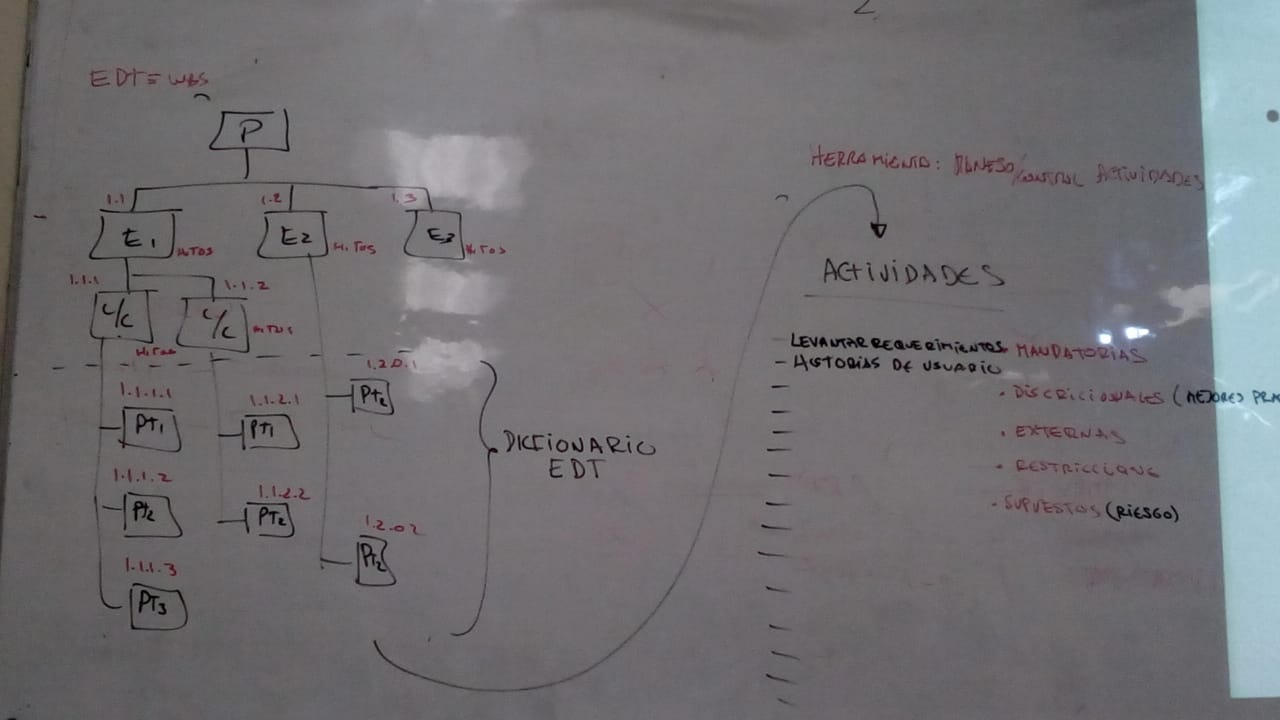 2
EDT = WBS
P
1.1
1.2
1.3
E1
HITOS
E2
HITOS
E3
HITOS
1.1.1
1.1.2
C/C
HITOS
C/C
HITOS
1.1.1.1
PT1
1.1.1.2
PT2
1.1.1.3
PT3
1.1.2.1
PT1
1.1.2.2
PT2
1.2.0.1
PT2
1.2.02
PT2
DICCIONARIO
EDT
HERRAMIENTO: /CONTROL ACTIVIDADES
ACTIVIDADES
LEVANTAR REQUERIMIENTOS
- HISTORIAS DE USUARIO
MANDATORIAS
• DISCRICIONALES (MEJORES PRA
• EXTERNAS
• RESTRICCIONE
• SUPUESTOS (RIESGO)